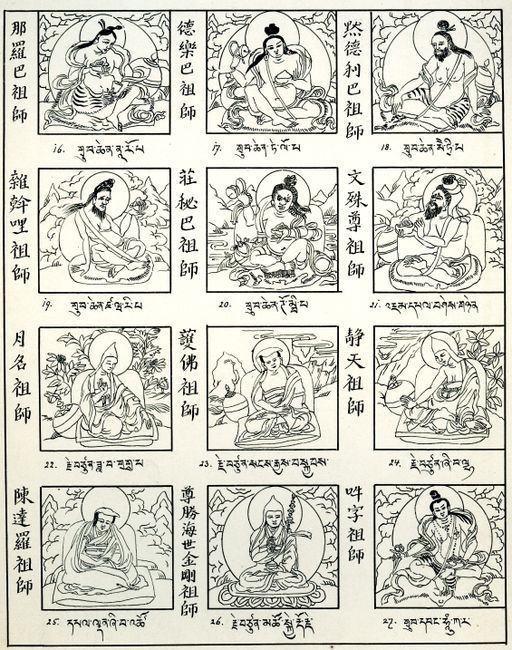 那羅巴祖師
德樂巴祖師
德利巴祖師
16. གྲུབ་ཆེན་ནཱ་རོ་པ
17. གྲུབ་ཆེན་ཏེ་ལོ་པ
18. གྲུབ་ཆེན་
雜斡哩祖師
莊秘巴祖師
文殊尊祖師
19. གྲུབ་ཆེན་
20. གྲུབ་ཆེན་
21. འཇམ་དཔལ་བཤེས་གཉེན
月名祖師
護佛祖師
静天祖師
22. རྗེ་བཙུན་ཟླ་བ་གྲགས་པ
23. རྗེ་བཙུན་སངས་རྒྱས་བསྐྱབས
24. རྗེ་བཙུན་ཞི་བ་ལྷ
陳達羅祖師
尊勝海世金剛祖師
吽字祖師
25. དཔལ་ལྡན་ཞི་བ་འཚོ
26. རྗེ་བཙུན་མཚོ་སྐྱེས་རྡོ་རྗེ
27. གྲུབ་དབང་ཧཱུྃ་ཀ་ར